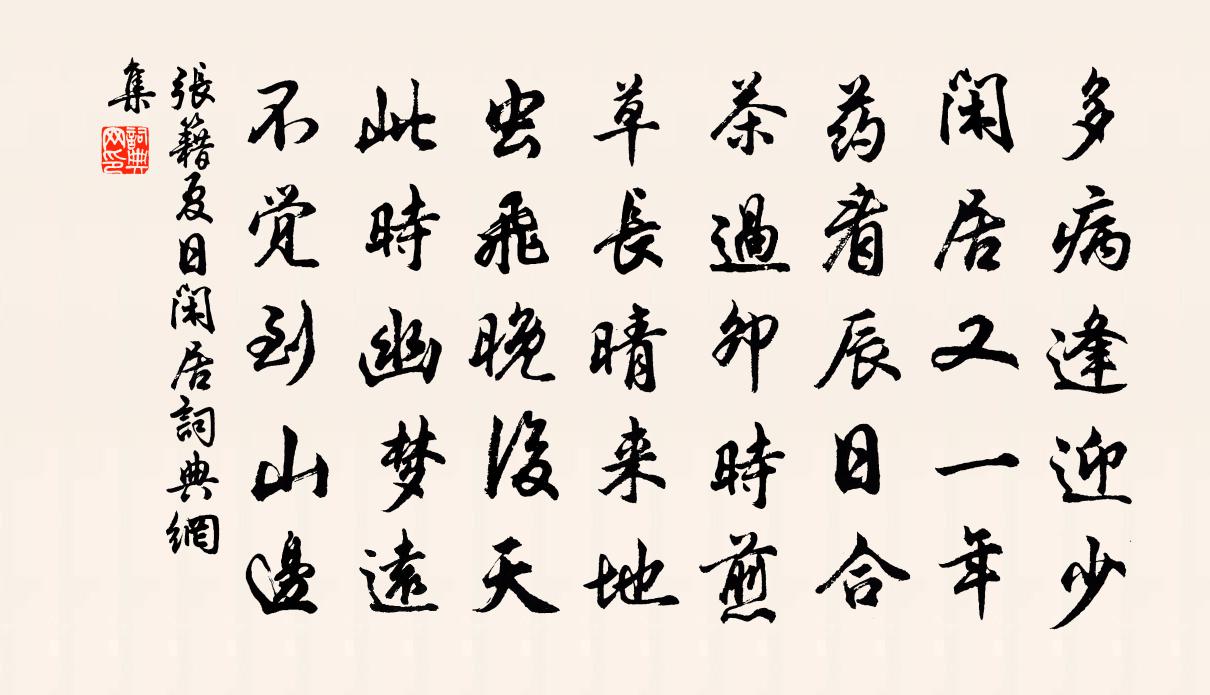 多病逢迎少
闲居又一年
药看辰日合
茶過卯時煎
草長晴来地
虫飛晚後天
此時幽梦遠
不觉到山邊
張籍夏日閑居詞典網
集
詞典网印